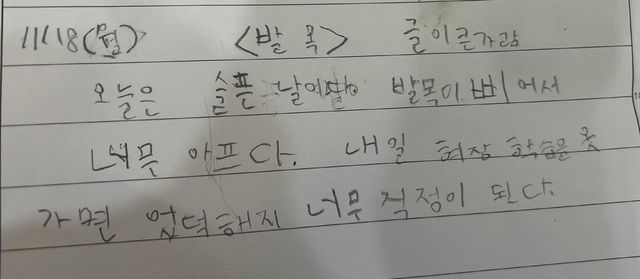 11/18(월) <발목> 글이큰가람
오늘은 슬픈 날이다 발목이 삐어서
너무 아프다. 내일 현장 학습은 못
가면 었덕해지 너무 걱정이 된다.